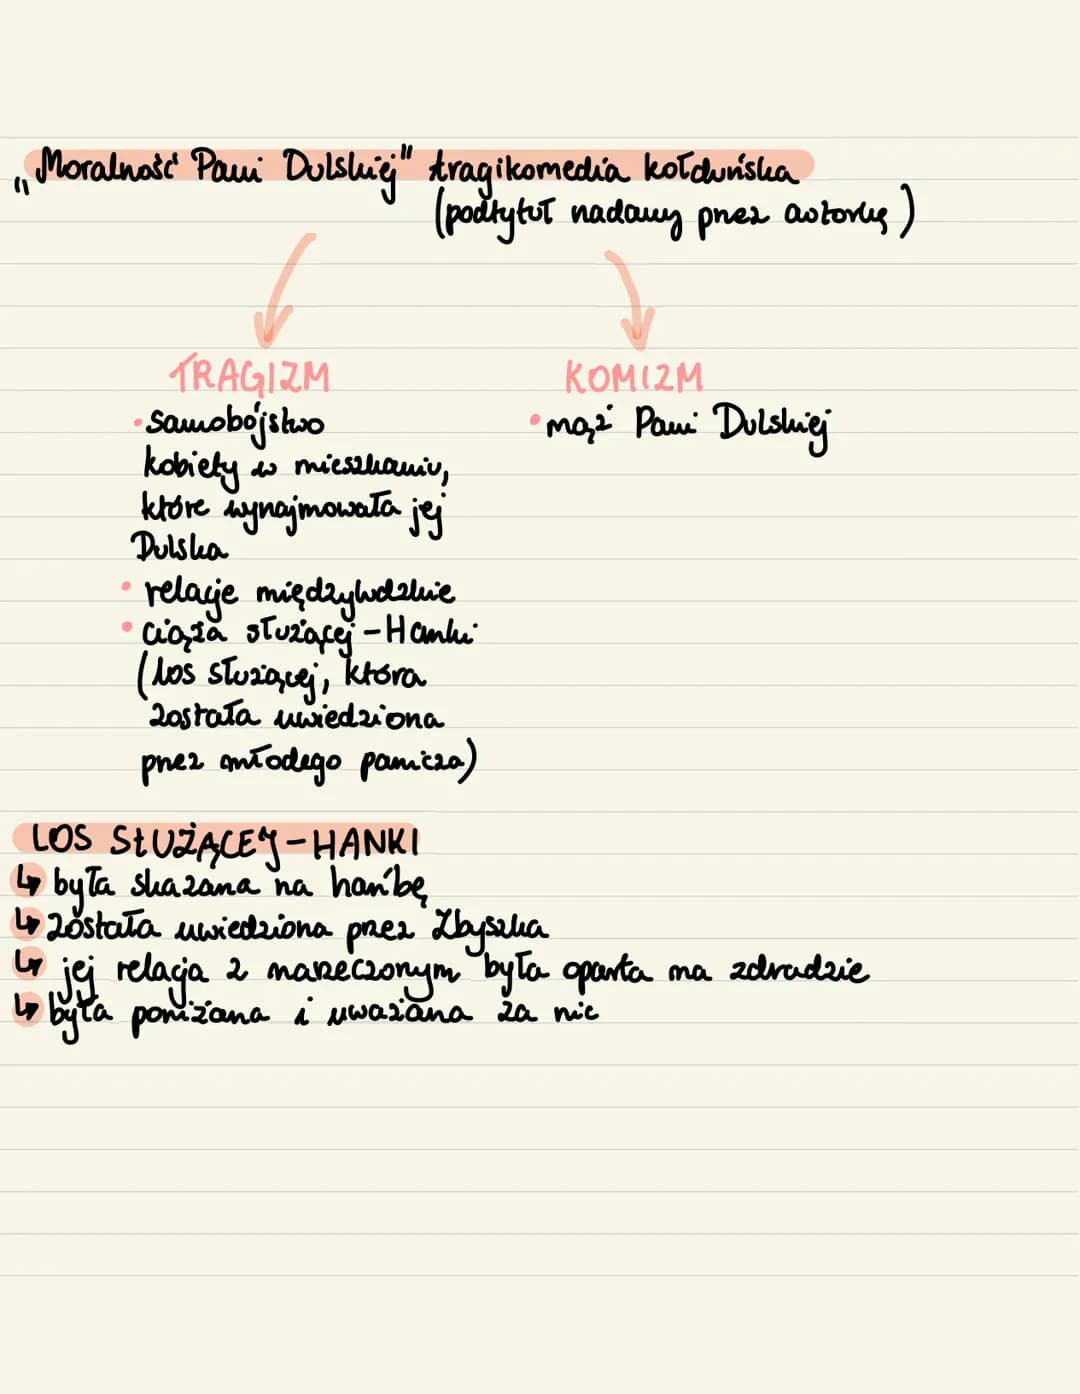 „Moralność Pani Dulskiej" tragikomedia kołduńska
(podtytuł nadany przez autorkę)
TRAGIZM
• samobójstwo
kobiety w mieszkaniu,
które wynajmowała jej
Dulska
• relacje międzyludzkie
• ciąża służącej - Hanki
(los służącej, która
została uwiedziona
przez młodego panicza)
KOMIZM
• mąż Pani Dulskiej
LOS SŁUŻĄCEJ - HANKI
↳ była skazana na hańbę
↳ została uwiedziona przez Zbyszka
↳ jej relacja z narzeczonym była oparta na zdradzie
↳ była poniżana i uważana za nic